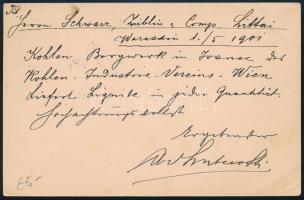 Herrn Schwarz, Zublin & Comp. Littai
Warasdin 1./5 1901
Kohlen Bergwerk in Ivanec des
Kohlen-Industrie-Vereins-Wien
Liefert Lignite in jeder Quantität.
Hochachtungsvollst
Ergebenster